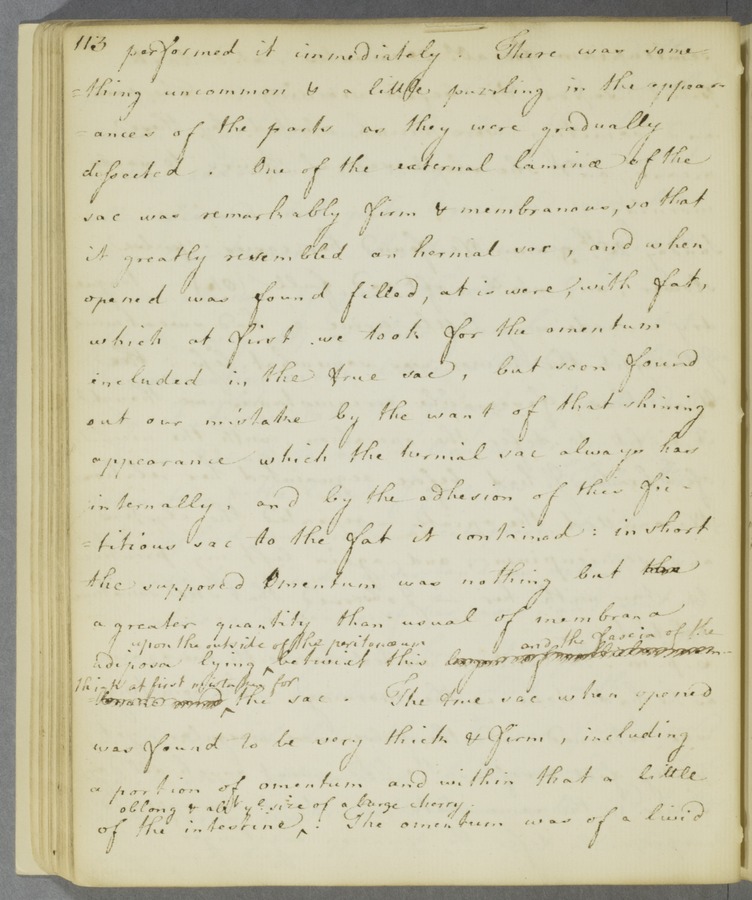 113 performed it immediately. There was some
=thing uncommon & a little puzzling in the appear
=ances of the parts as they were gradually
dissected. One of the external laminæ of the
sac was remarkably firm & membranous, so that
it greatly resembled an hernial sac, and when
opened was found filled, as it were, with fat,
which at first we took for the omentum
included in the true sac, but soon found
out our mistake by the want of that shining
appearance which the hernial sac always has
internally, and by the adhesion of this fic-
=titious sac to the fat it contained: in short
the supposed Omentum was nothing but
a greater quantity than usual of membrana
upon the outside of the peritonæum and the fascia of the
adiposa lying betwixt this
think at first mistaken for
the sac. The true sac when opened
was found to be very thick & firm, including
a portion of omentum and within that a little
oblong & abt. ye. size of a large cherry
of the intestine. The omentum was of a livid